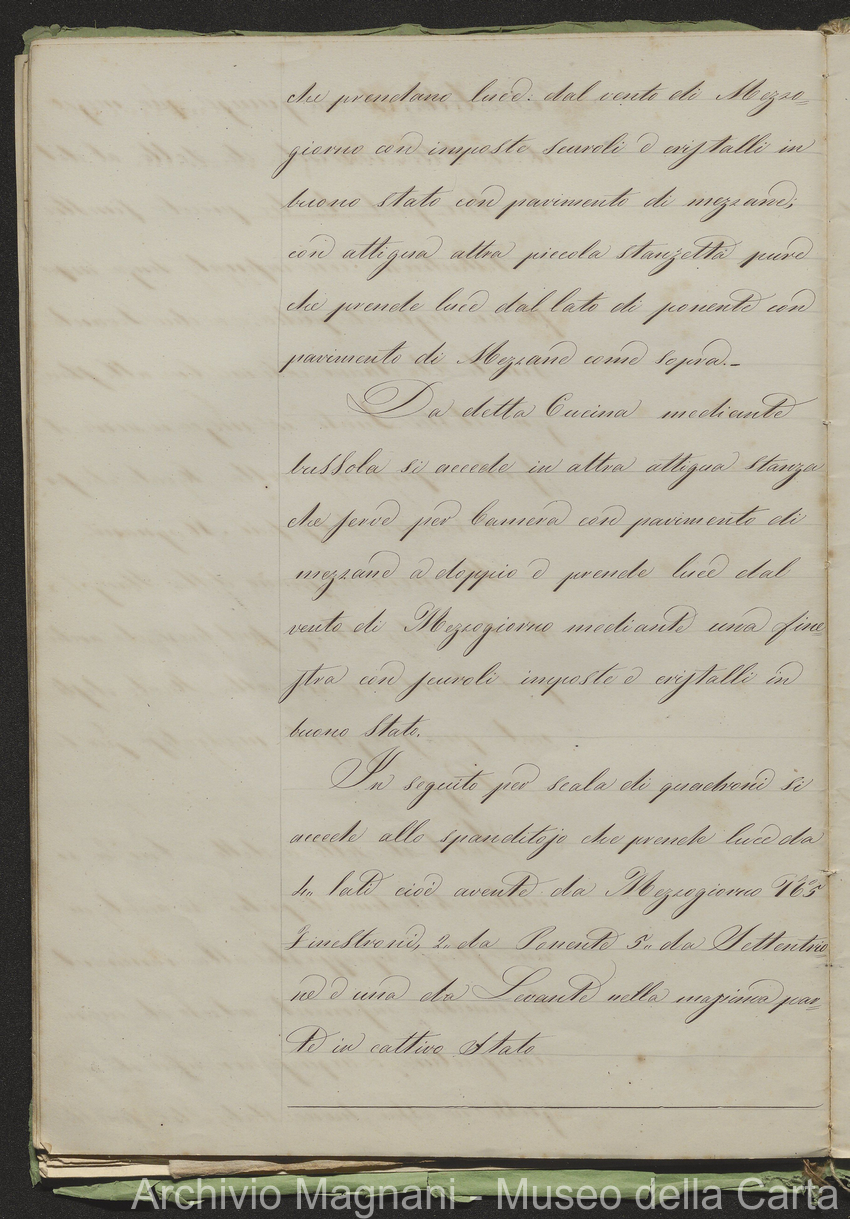 che prendano luce. dal vento di Mezzo=
giorno con imposte scuroli e cristalli in
buono stato con pavimento di mezzane;
con attigua altra piccola stanzetta pure
che prende luce dal lato di ponente con
pavimento di Mezzane come sopra.=
Da detta Cucina mediante
bussola si accede in altra attigua stanza
che serve per Camera con pavimento di
mezzane a doppio e prende luce dal
vento di Mezzogiorno mediante una fine=
stra con scuroli imposte e cristalli in
buono stato.
In seguito per scala di quadroni si
accede allo spanditojo che prende luce da
4" lati cioè avente da Mezzogiorno
Finestroni, 2" da Ponente 5" da Settentrio
ne e una da Levante nella massima par=
te in cattivo stato
Archivio Magnani - Museo della Carta